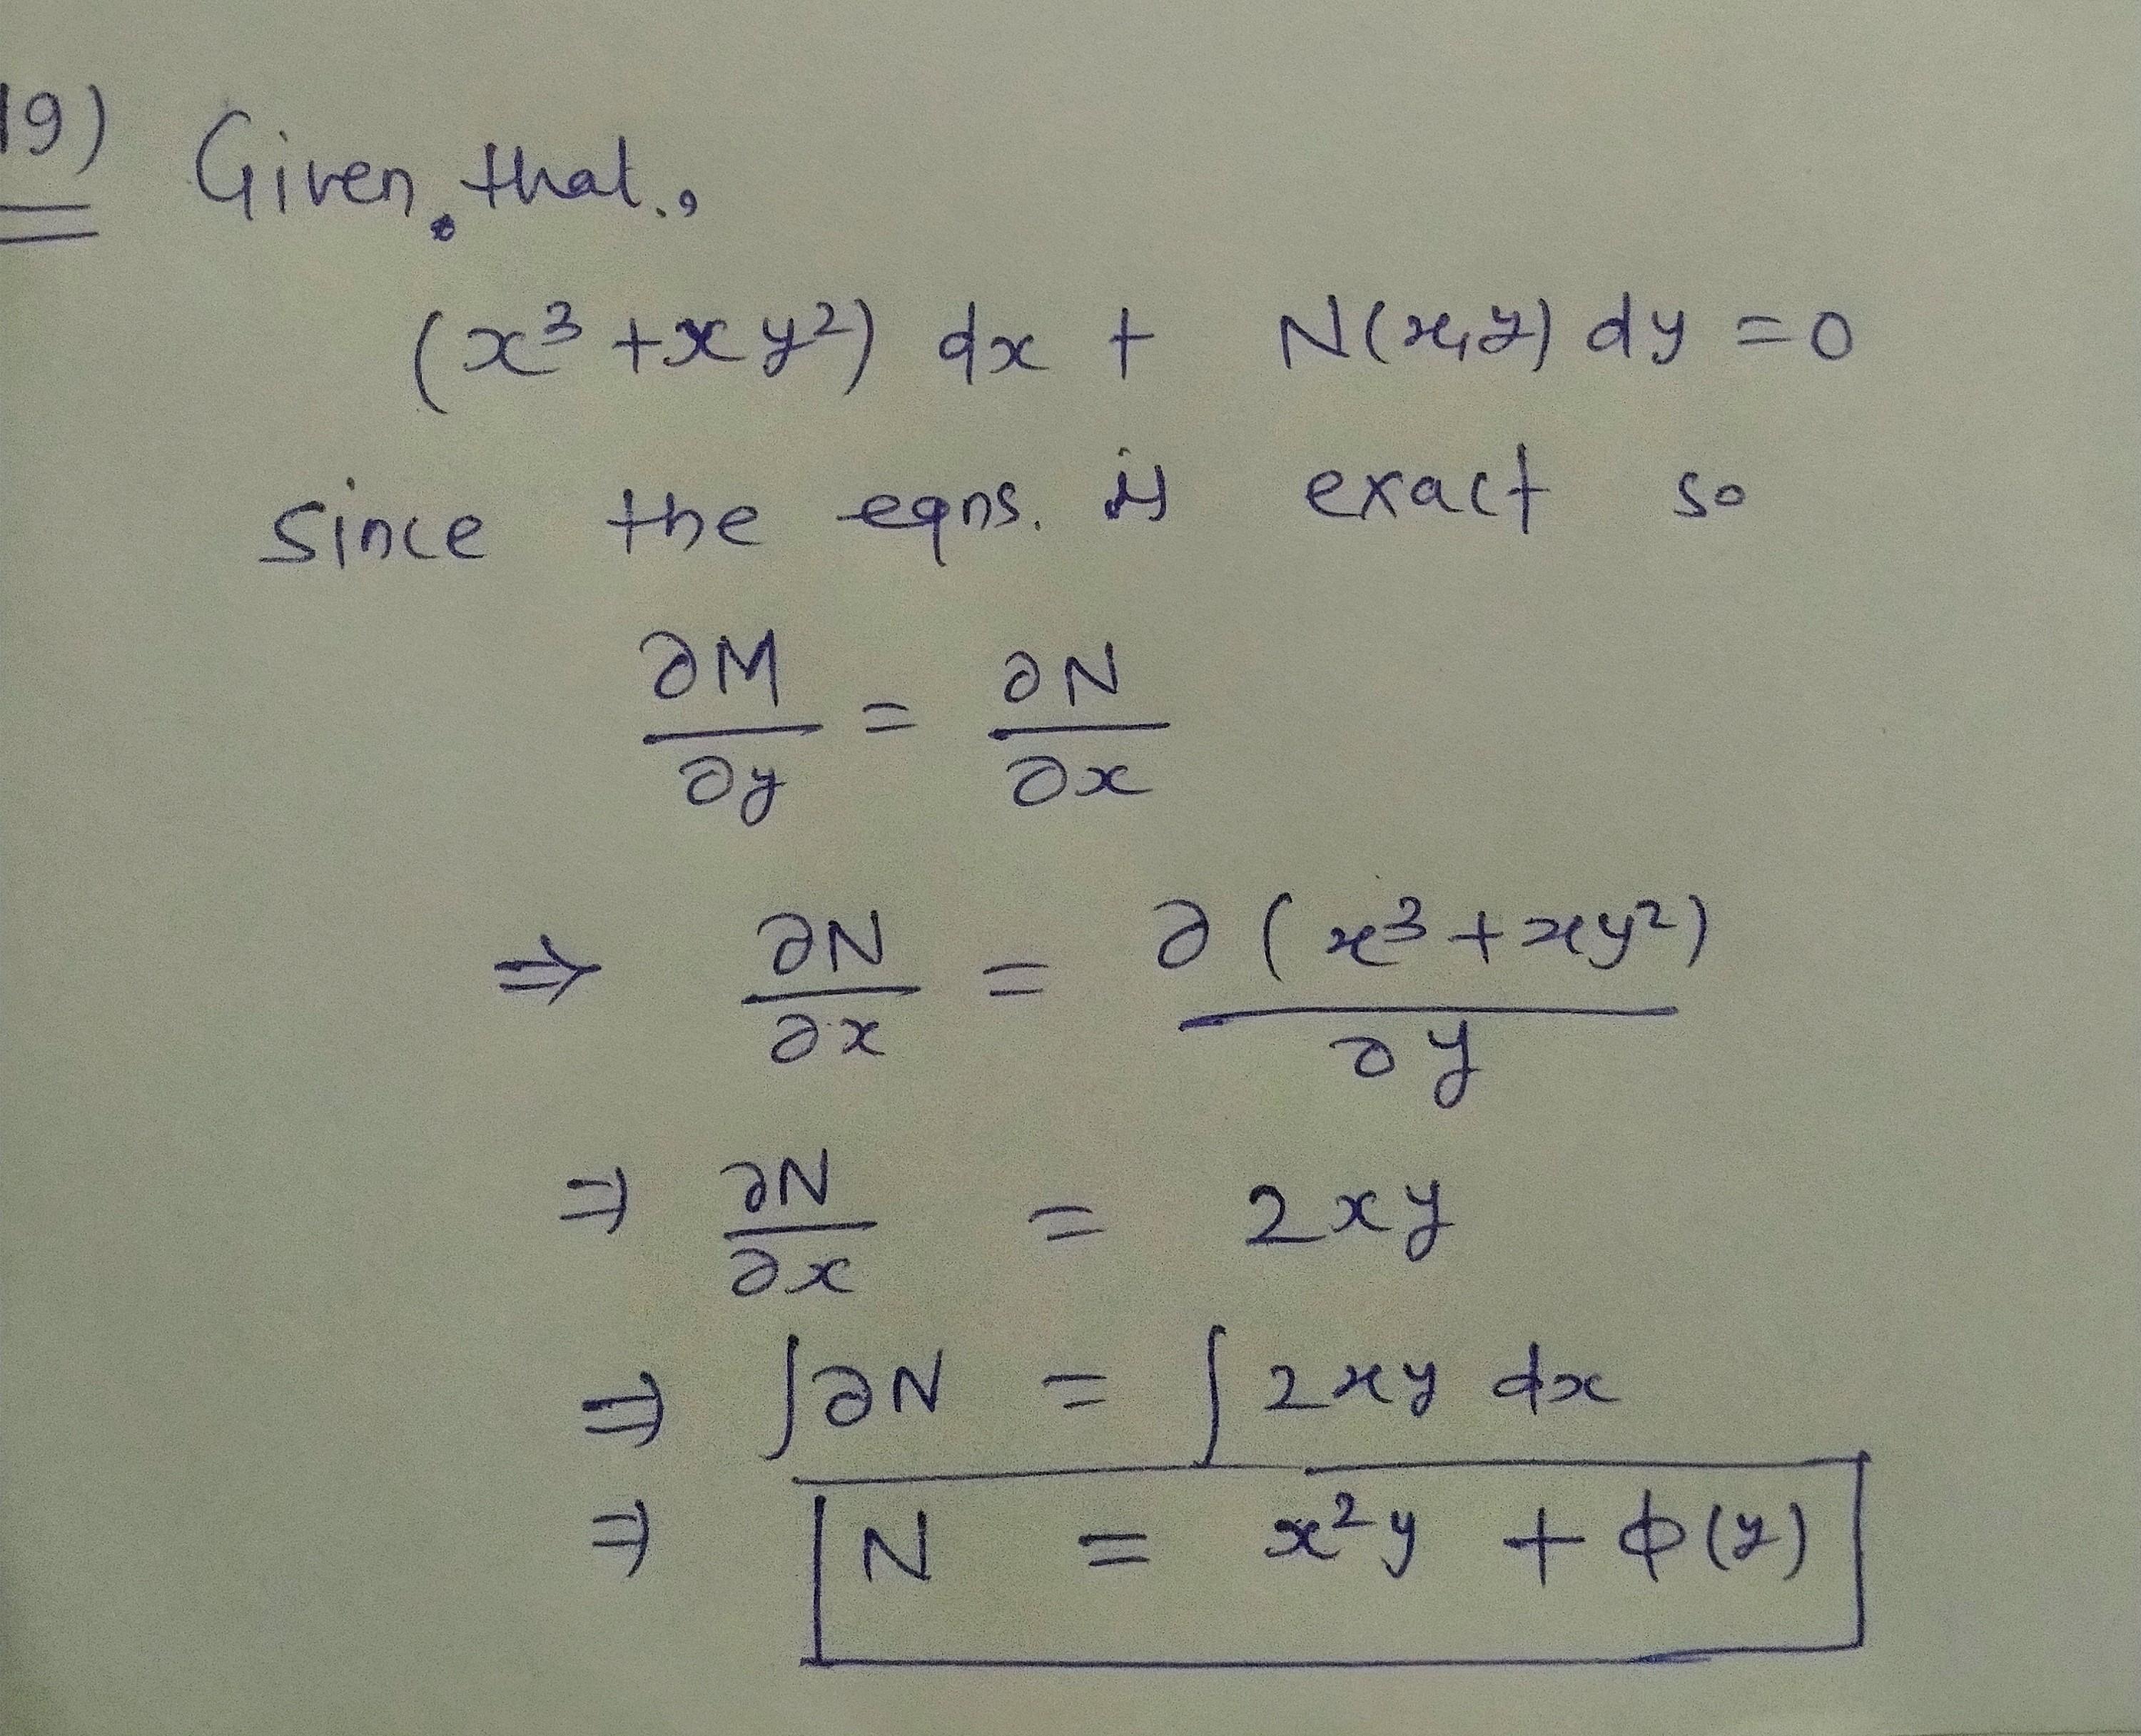 19) Given that.,
(x³ + xy²) dx + N(x,y) dy = 0
since the eqns. is exact so
∂M/∂y = ∂N/∂x
⇒ ∂N/∂x = ∂(x³ + xy²)/∂y
⇒ ∂N/∂x = 2xy
⇒ ∫∂N = ∫2xy dx
⇒ N = x²y + ϕ(y)